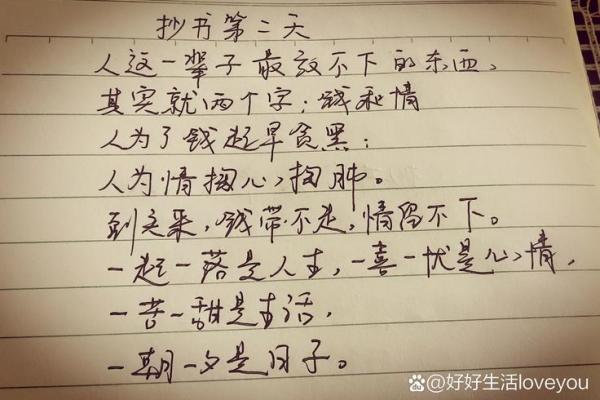 抄书第二天
人这一辈子最放不下的东西、
其实就两个字：钱和情
人为了钱起早贪黑；
人为情掏心掏肺。
到头来，钱带不走，情留不下。
一起一落是人生，一喜一忧是心情，
一苦一甜是生活，
一朝一夕是日子。
@好好生活loveyou